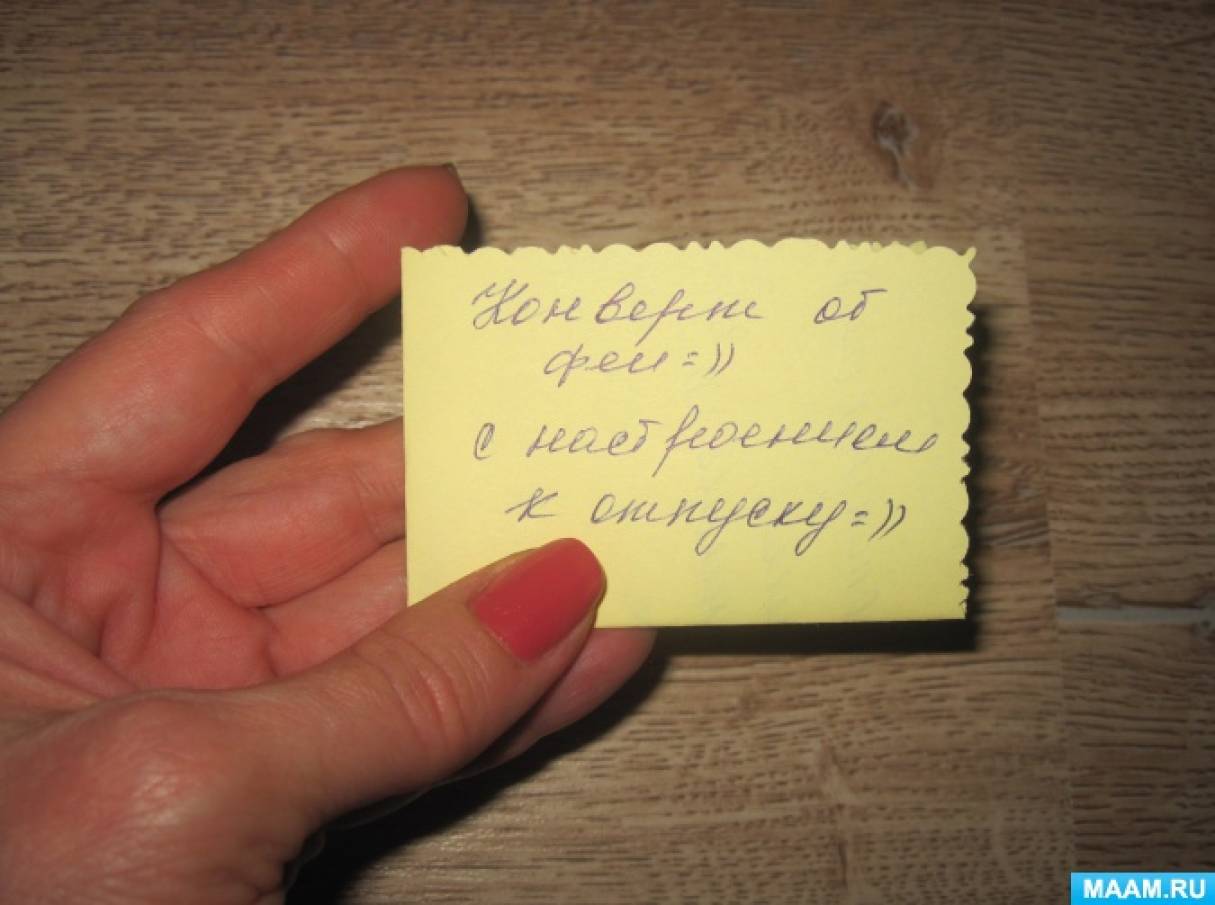 Конверт от
феи=))
с настроением
к отпуску=))
MAAM.RU